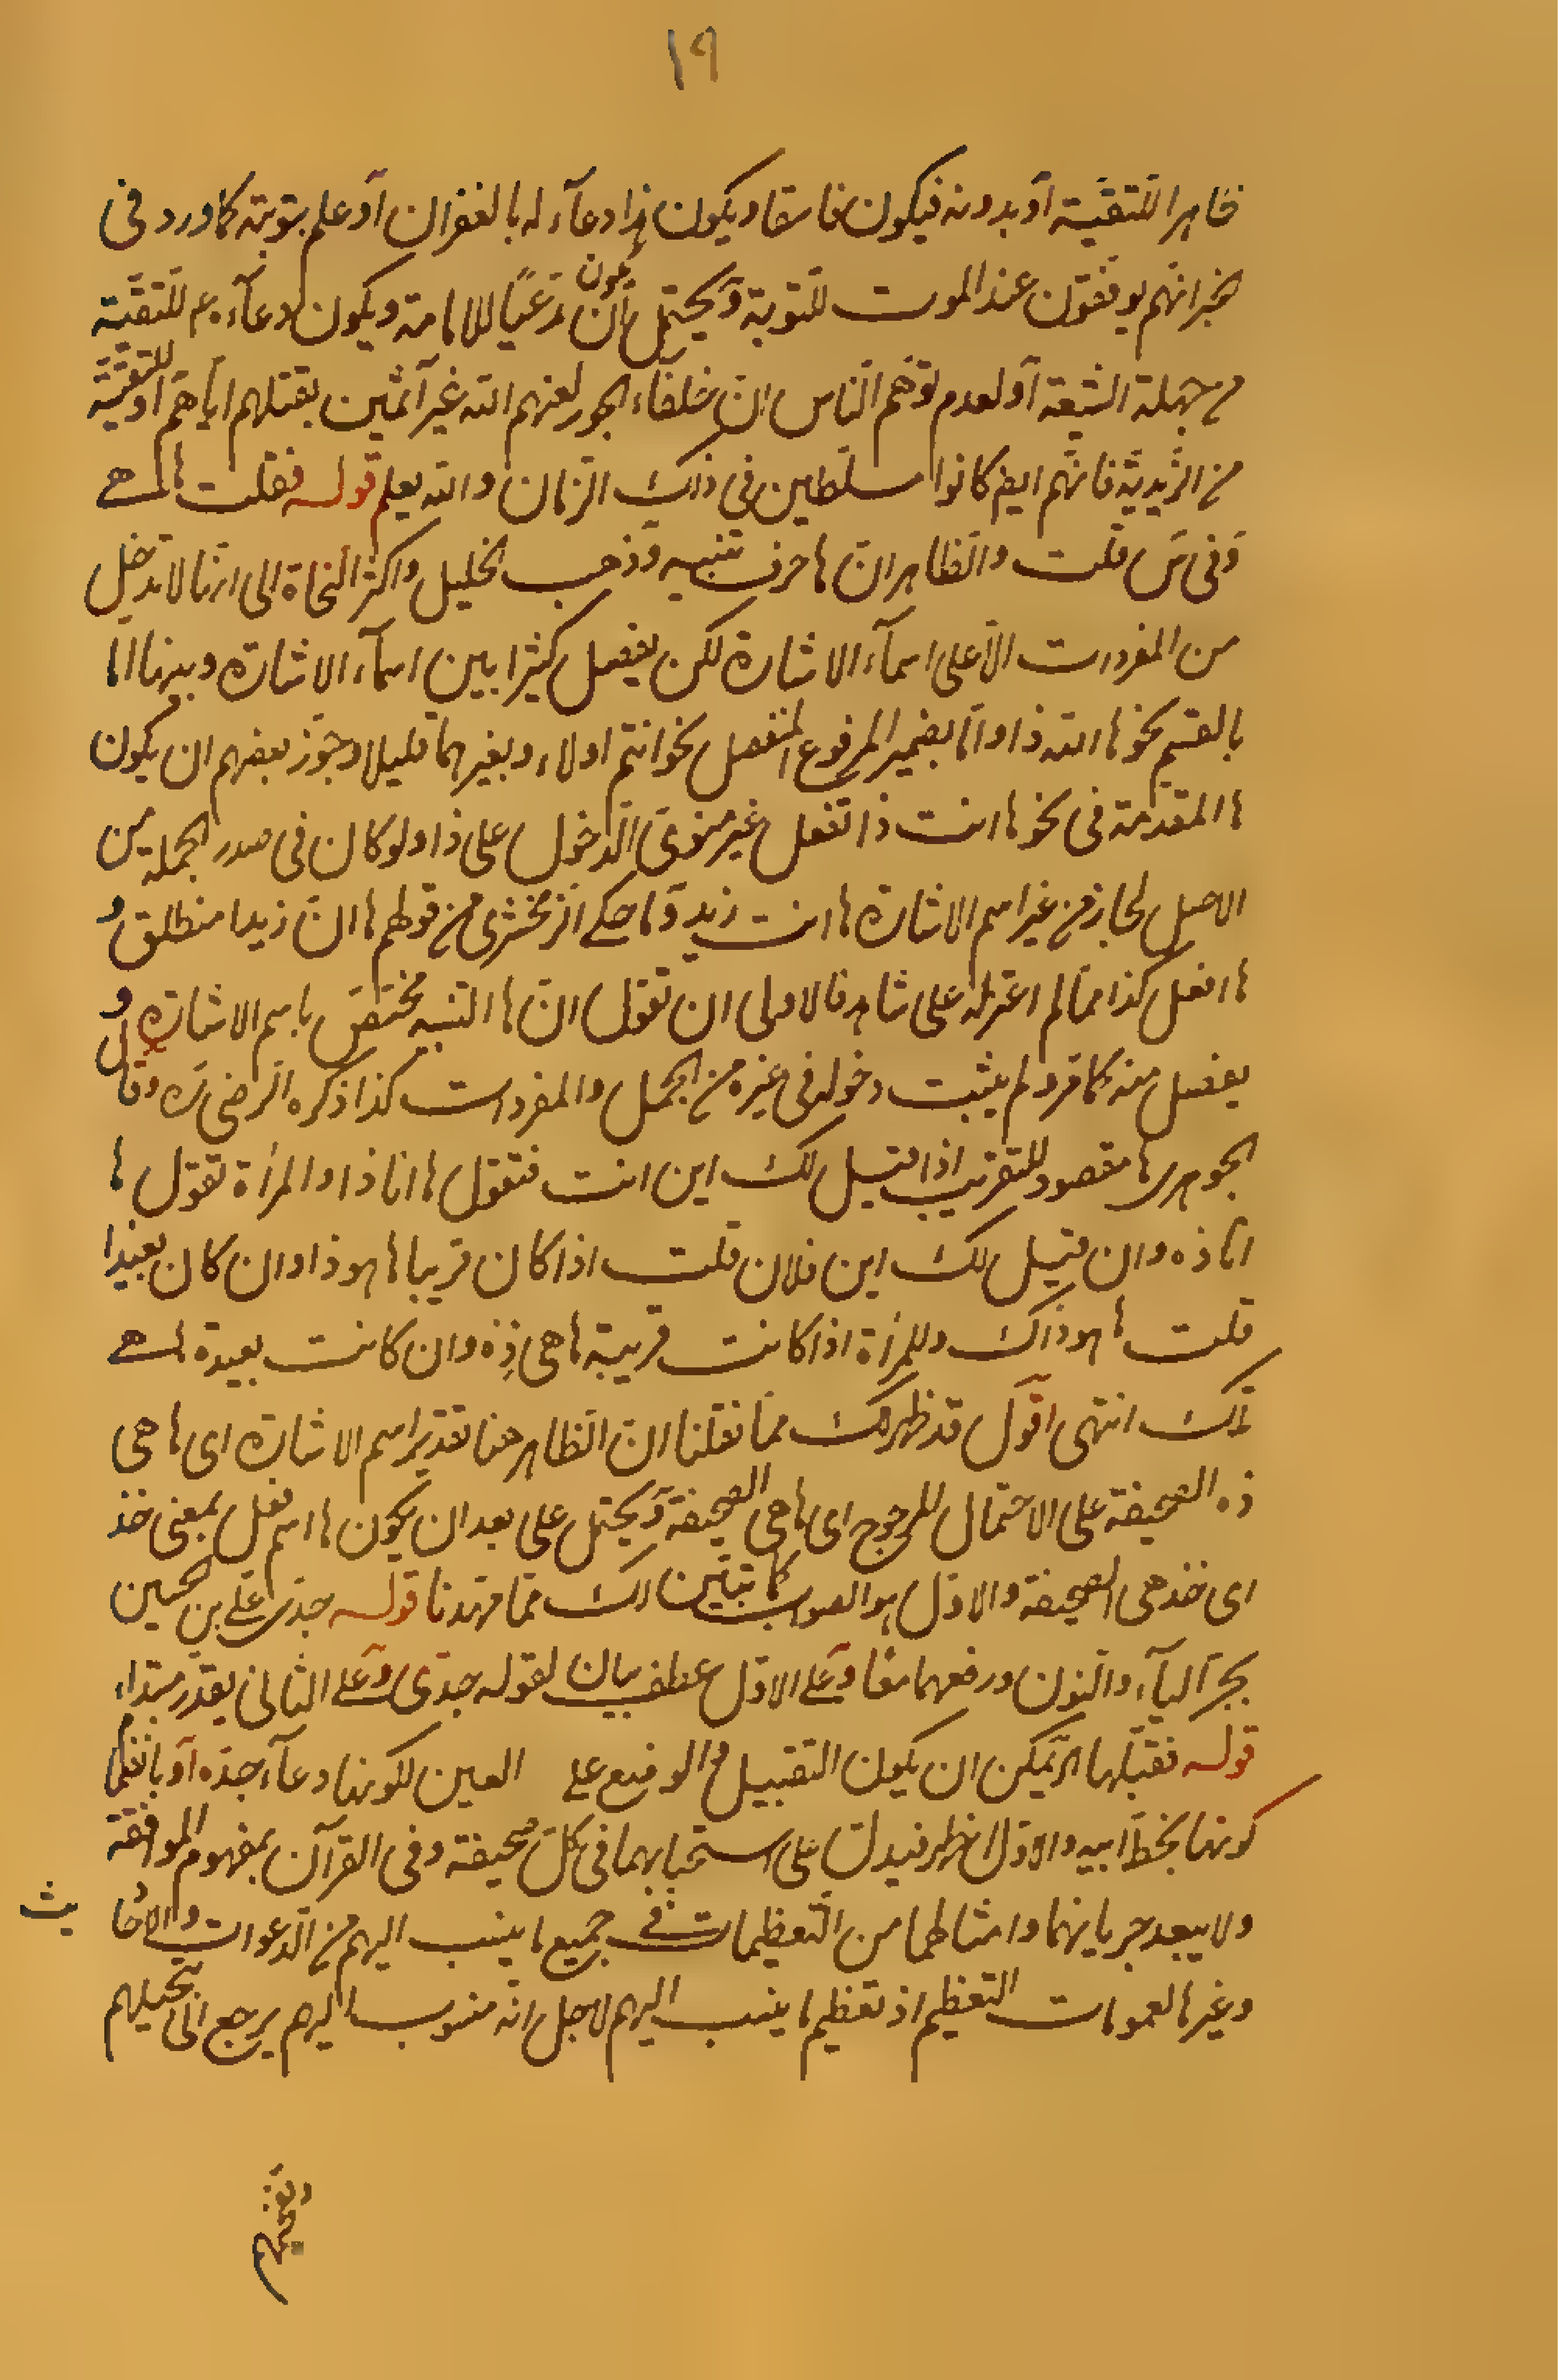 ١٩
ظاهرا للتقية أو بدونه فيكون فاسقا ويكون هذا دعاء له بالغفران أو علم بتوبته كما ورد في
خبر انهم يوفقون عند الموت للتوبة ويحتمل أن يكون مدعيا للامامة ويكون دعاءه ع للتقية
من جهلة الشيعة أو لعدم توهم الناس ان خلفاء الجور لعنهم الله غير آثمين بقتلهم اياهم أو للتقية
من الزيدية فانهم ايض كانوا مسلطين في ذلك الزمان والله يعلم قوله فقلت ها هي
وفي س قلت والظاهر ان ها حرف تنبيه وذهب الخليل واكثر النحاة الى انها لا تدخل
من المفردات الا على اسماء الاشارة لكن يفصل كثيرا بين اسماء الاشارة وبينها اما
بالقسم نحو ها الله ذا واما بضمير المرفوع المنفصل نحو ها انتم اولاء وبغيرهما قليلا وجوز بعضهم ان يكون
ها المقدمة في نحو ها انت ذا تفعل غير منوي الدخول على ذا ولو كان في صدر الجملة من
الاصل لجاز من غير اسم الاشارة ها انت زيد وما حكى الزمخشري من قولهم ها ان زيدا منطلق و
ها افعل كذا مما لم اعثر له على شاهد فالاولى ان نقول ان ها التنبيه مختص باسم الاشارة و
يفصل منه كما مر ولم يثبت دخوله في غيره من الجمل والمفردات كذا ذكره الرضي ره وقال
الجوهري ها مقصور للتقريب اذا قيل لك اين انت فتقول ها انا ذا والمرأة تقول ها
انا ذه وان قيل لك اين فلان قلت اذا كان قريبا ها هو ذا وان كان بعيدا
قلت ها هو ذاك وللمرأة اذا كانت قريبة ها هي ذه وان كانت بعيدة ها هي
تلك انتهى أقول قد ظهر لك مما نقلنا ان الظاهر هنا تقدير اسم الاشارة اي ها هي
ذه الصحيفة على الاحتمال المرجوح اي ها هي الصحيفة ويحتمل على بعد ان يكون ها اسم فعل بمعنى خذ
اي خذ هي الصحيفة والاول هو الصواب كما تبين لك مما مهدنا قوله جدي علي بن الحسين
بجر الياء والنون ورفعهما معا وعلى الاول عطف بيان لقوله جدي وعلى الثاني يقدر مبتداء
قوله فقبلها الخ يمكن ان يكون التقبيل والوضع على العين لكونها دعاء جده أو باملاء
كونها بخط ابيه والاول اظهر فيدل على استحبابهما في كل صحيفة وفي القرآن بمفهوم الموافقة
ولا يبعد جريانهما وامثالهما من التعظيمات في جميع ما ينسب اليهم من الدعوات والاحاديث
وغيرها لعمومات التعظيم اذ تعظيم ما ينسب اليهم لاجل انه منسوب اليهم يرجع الى تبجيلهم